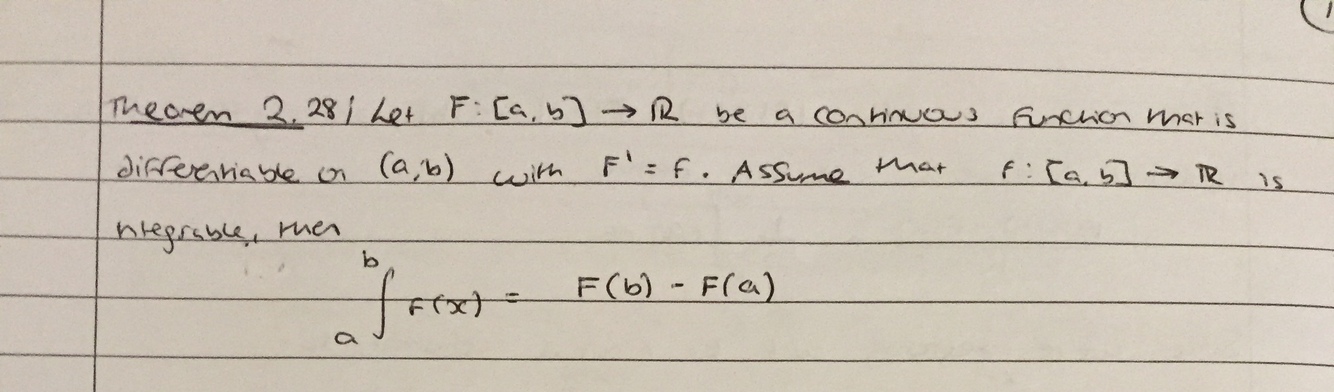 Theorem 2.28 / Let F: [a, b] → ℝ be a continuous function that is
differentiable on (a,b) with F' = f. Assume that f: [a, b] → ℝ is
ntegrable, then
b
∫ f(x) = F(b) - F(a)
a